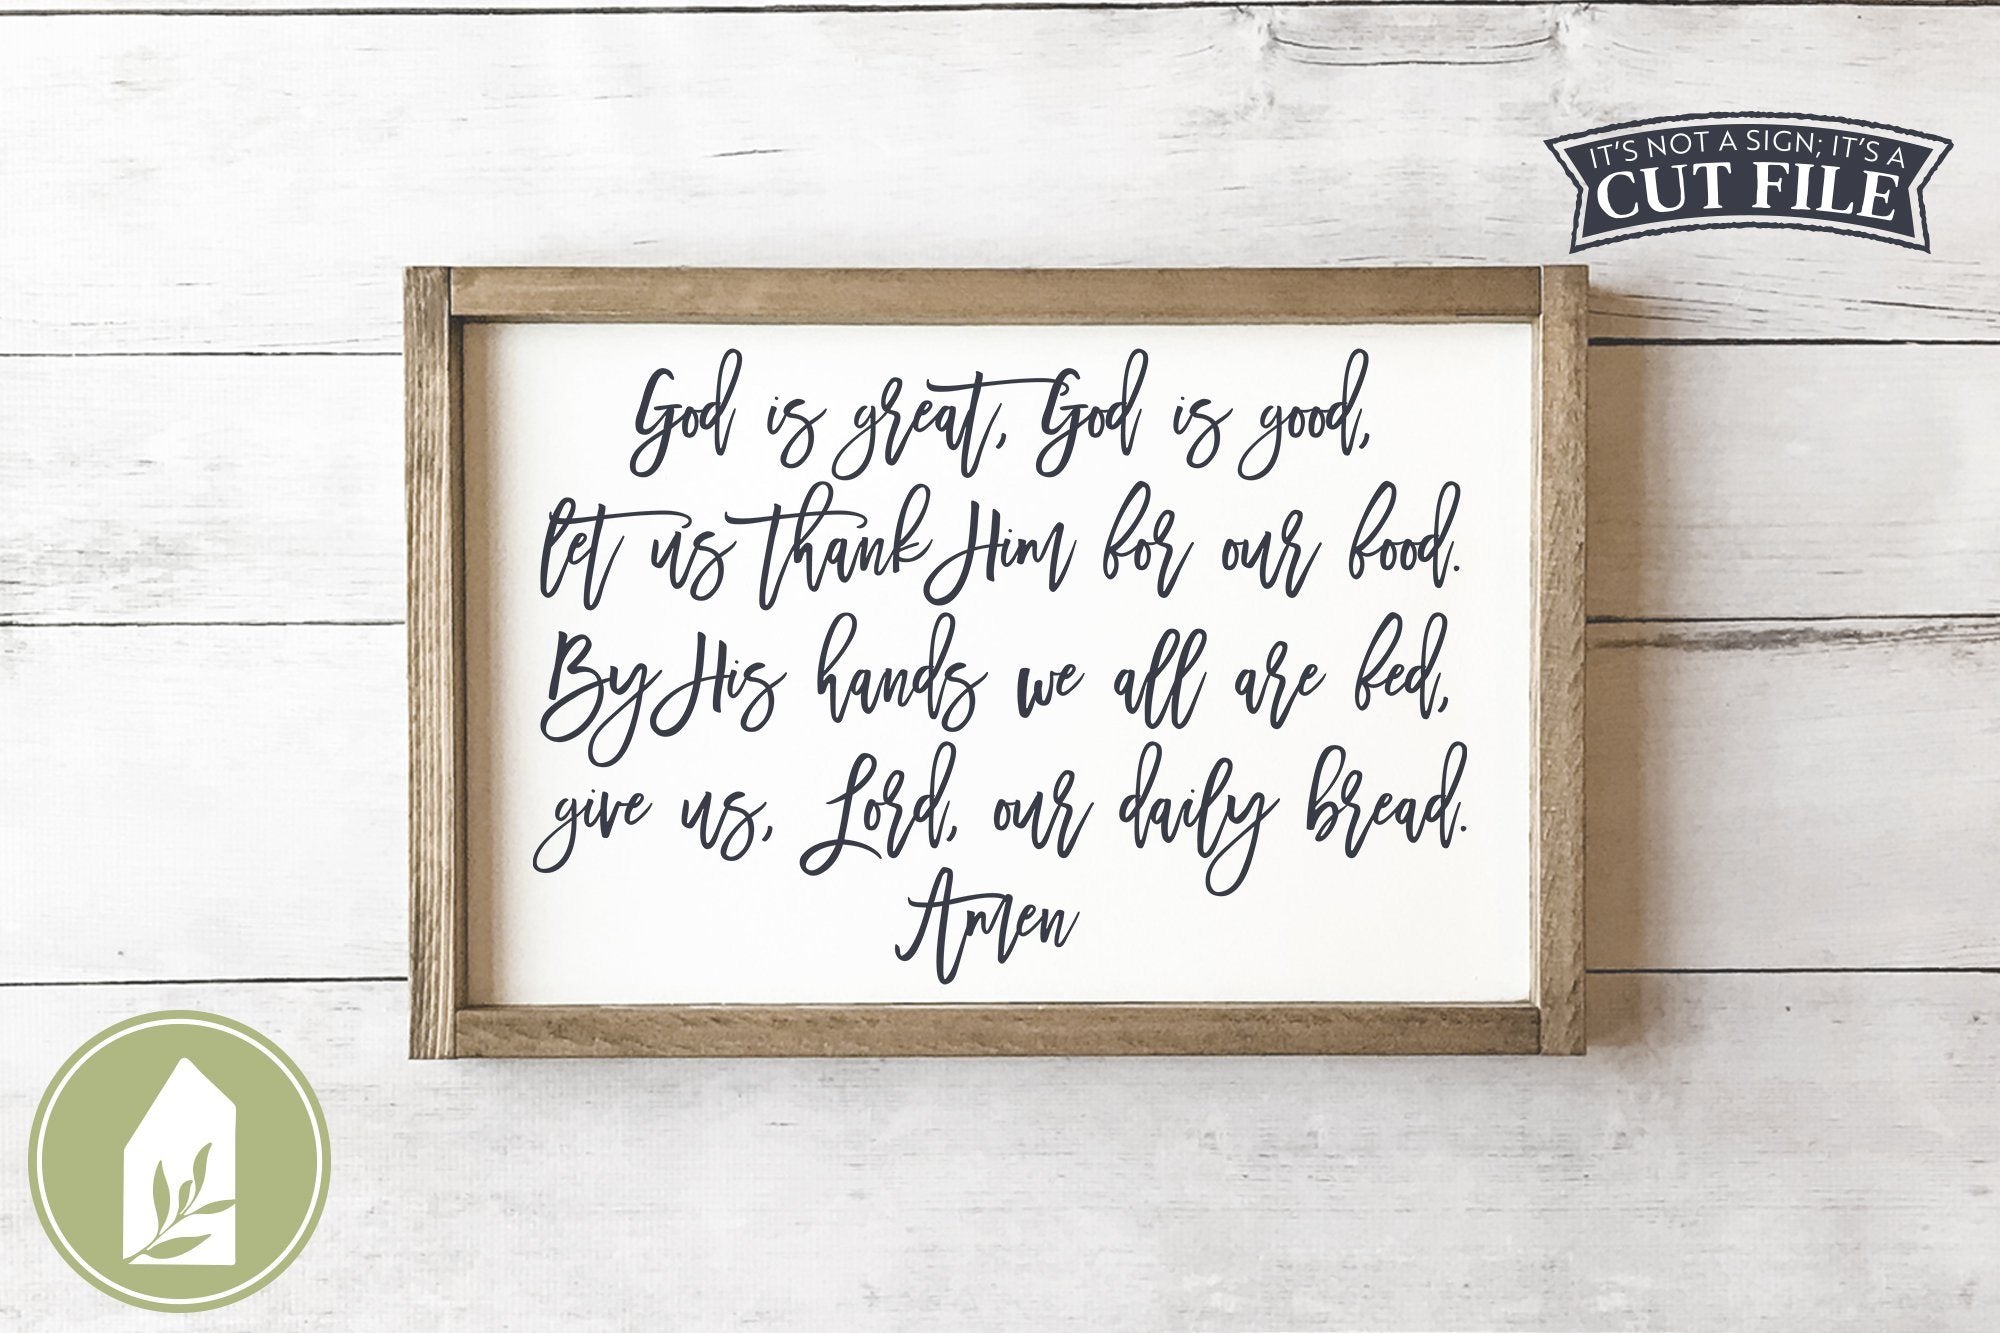 IT'S NOT A SIGN; IT'S A
CUT FILE
God is great, God is good,
let us thank Him for our food.
By His hands we all are fed,
give us, Lord, our daily bread.
Amen